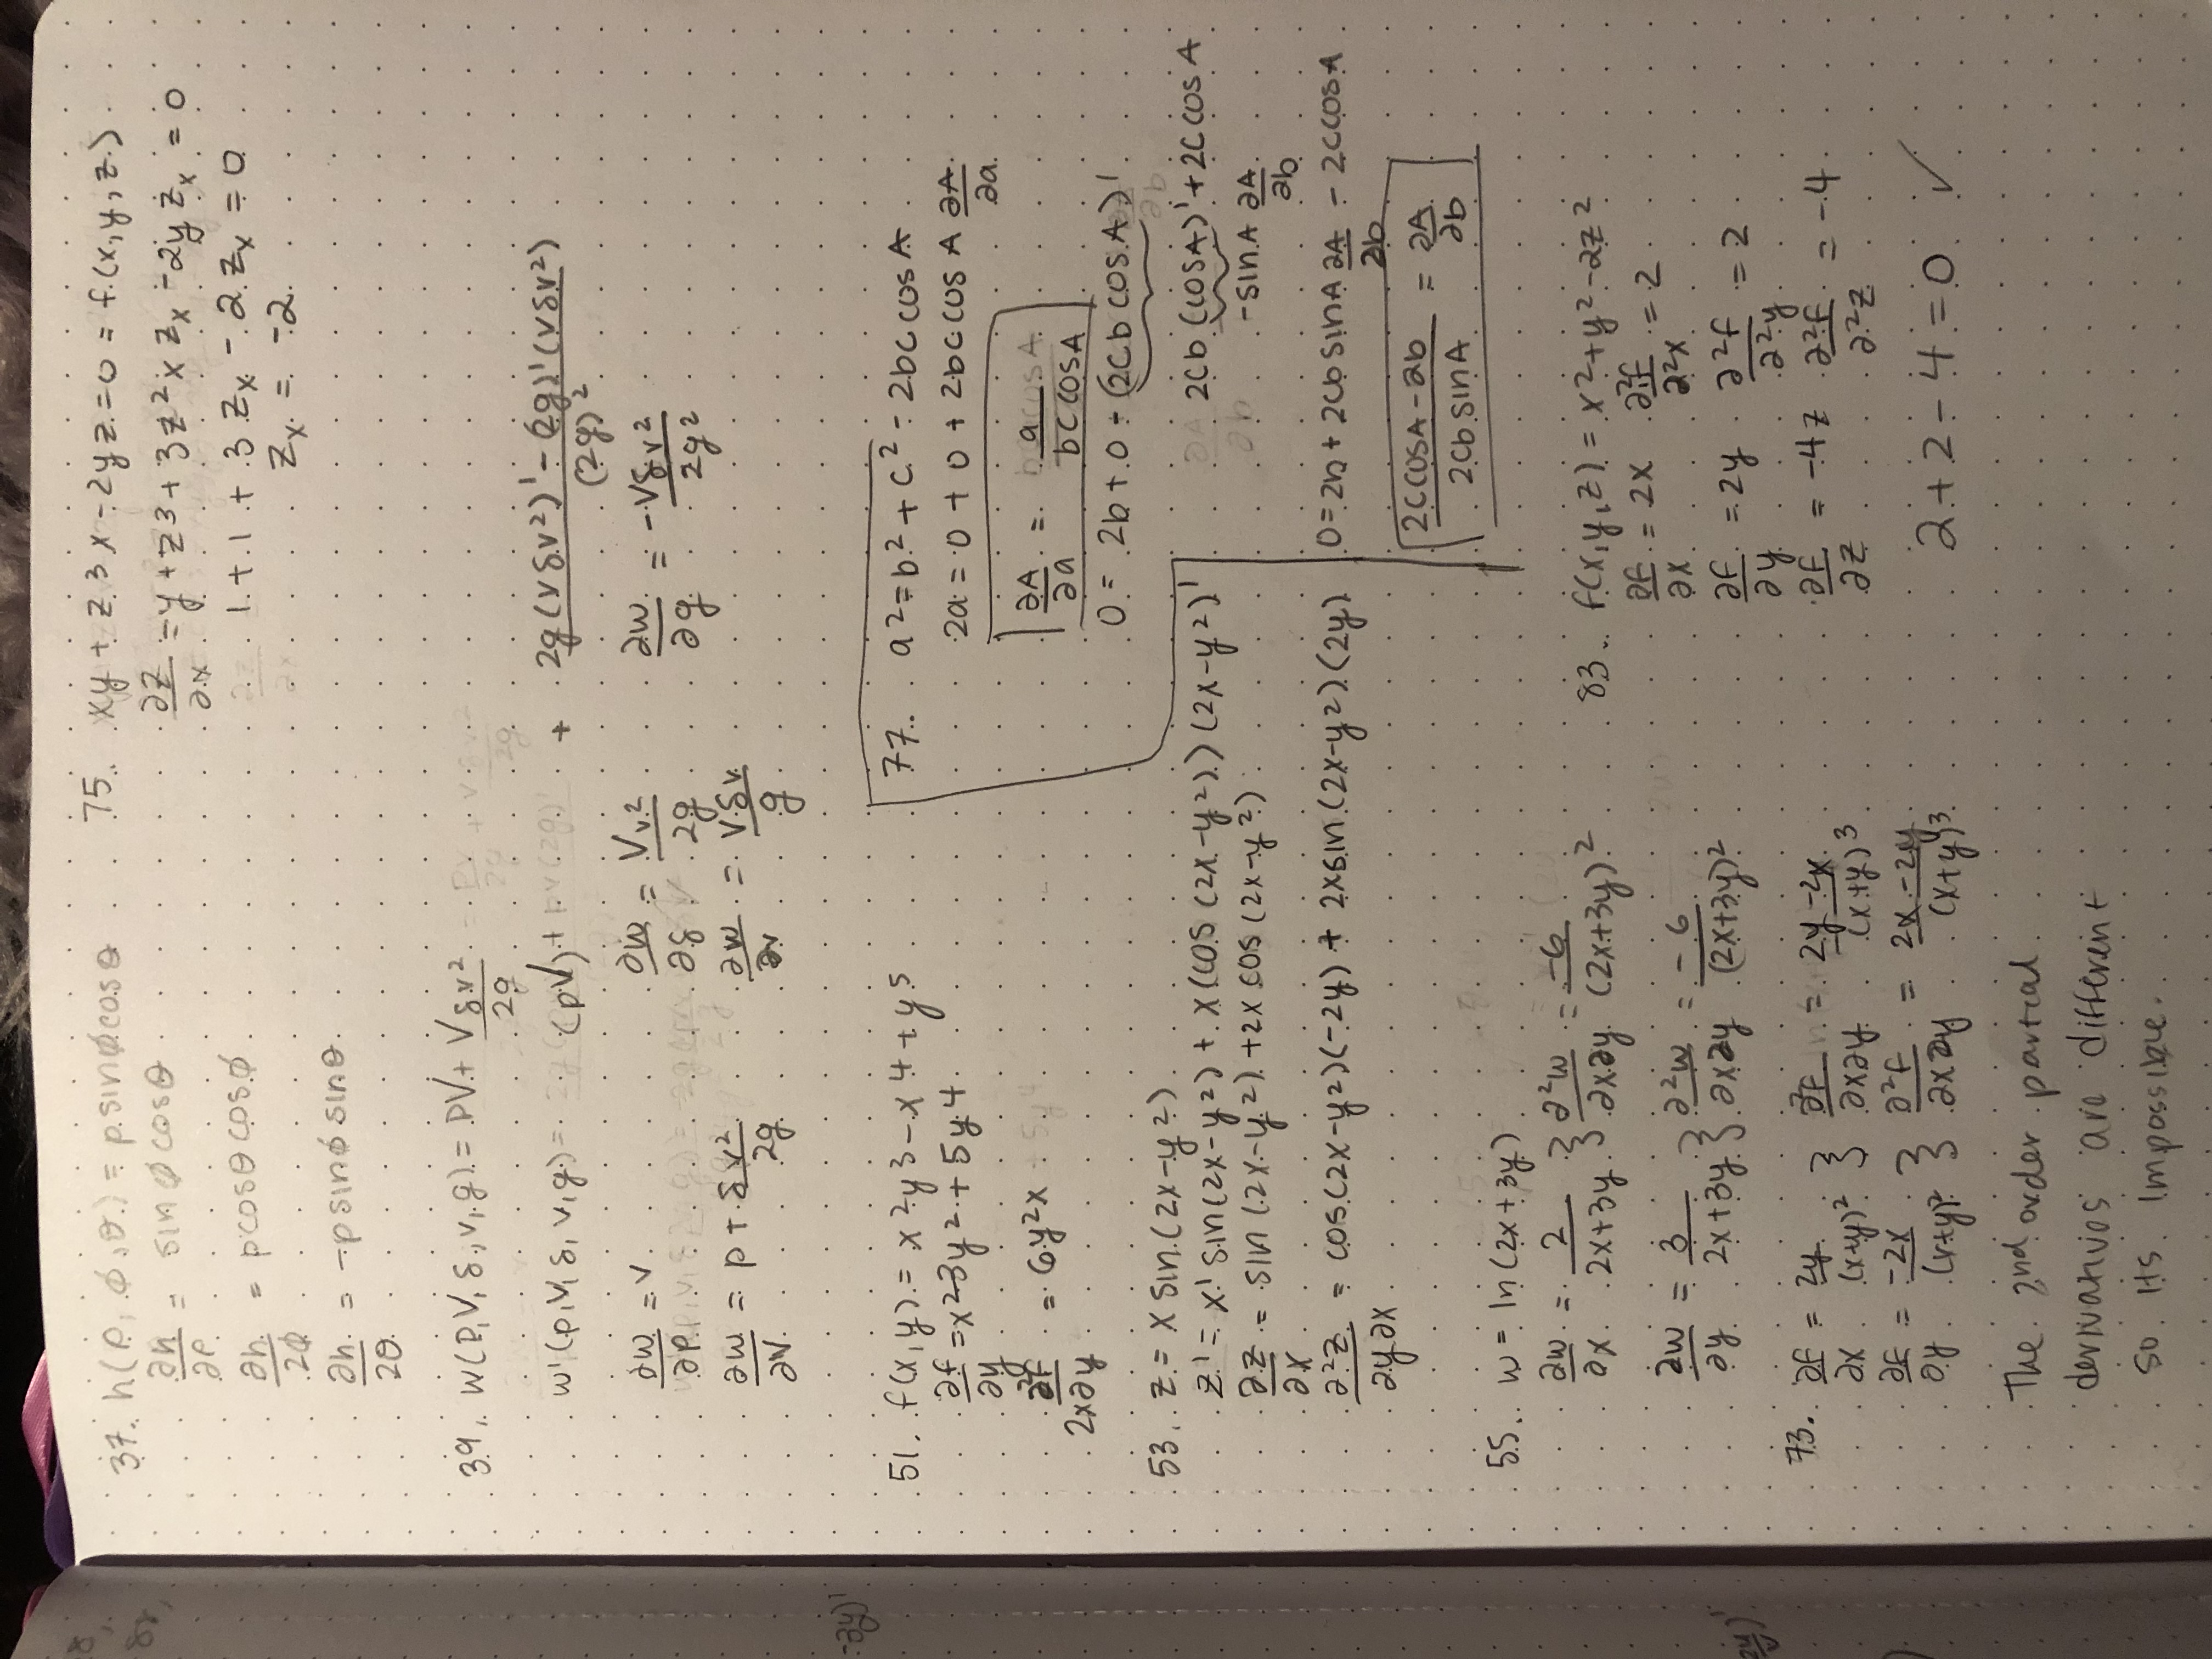 37. h(ρ, ϕ, θ) = ρ sinϕcosθ
∂h/∂ρ = sinϕcosθ
∂h/∂ϕ = ρcosθcosϕ
∂h/∂θ = -ρsinϕsinθ
39. W(P,V,δ,v,g) = PV + Vδv²/2g
W'(p,V,δ,v,g) = (pV) + + 2g(Vδv²)' - (2g)'(Vδv²)/(2g)²
∂w/∂P = V ∂w/∂δ = Vv²/2g ∂w/∂g = -Vδv²/2g²
∂w/∂V = p + δv²/2g ∂w/∂v = Vδv/g
51. f(x,y) = x²y³ - x⁴ + y⁵
∂f/∂y = x²3y² + 5y⁴
∂²f/∂x∂y = 6y²x
53. z = x sin(2x-y²)
z' = x' sin(2x-y²) + x(cos(2x-y²))(2x-y²)'
∂z/∂x = sin(2x-y²) + 2x cos(2x-y²)
∂²z/∂y∂x = cos(2x-y²)(-2y) + 2xsin(2x-y²)(2y)
55. w = ln(2x+3y)
∂w/∂x = 2/2x+3y } ∂²w/∂x∂y = -6/(2x+3y)²
∂w/∂y = 3/2x+3y } ∂²w/∂x∂y = -6/(2x+3y)²
73. ∂f/∂x = 2y/(x+y)² } ∂²f/∂x∂y = 2y-2x/(x+y)³
∂f/∂y = -2x/(x+y)² } ∂²f/∂x∂y = 2x-2y/(x+y)³
The 2nd order partial
derivatives are different
so its impossible.
75. xy + z³x - 2yz = 0 = f(x,y,z)
∂z/∂x = y + z³ + 3z²x zₓ - 2y zₓ = 0
1 + 1 + 3 zₓ - 2 zₓ = 0
zₓ = -2
77. a² = b² + c² - 2bc cosA
2a = 0 + 0 + 2bc cosA ∂A/∂a
∂A/∂a = a/bc cosA
0 = 2b + 0 - (2cb cosA)'
2cb (cosA)' + 2c cosA
-sinA ∂A/∂b
0 = 2b + 2cb sinA ∂A/∂b - 2ccosA
2ccosA - 2b/2cb sinA = ∂A/∂b
83. f(x,y,z) = x² + y² - 2z²
∂f/∂x = 2x ∂²f/∂²x = 2
∂f/∂y = 2y ∂²f/∂²y = 2
∂f/∂z = -4z ∂²f/∂²z = -4
2 + 2 - 4 = 0 ✓